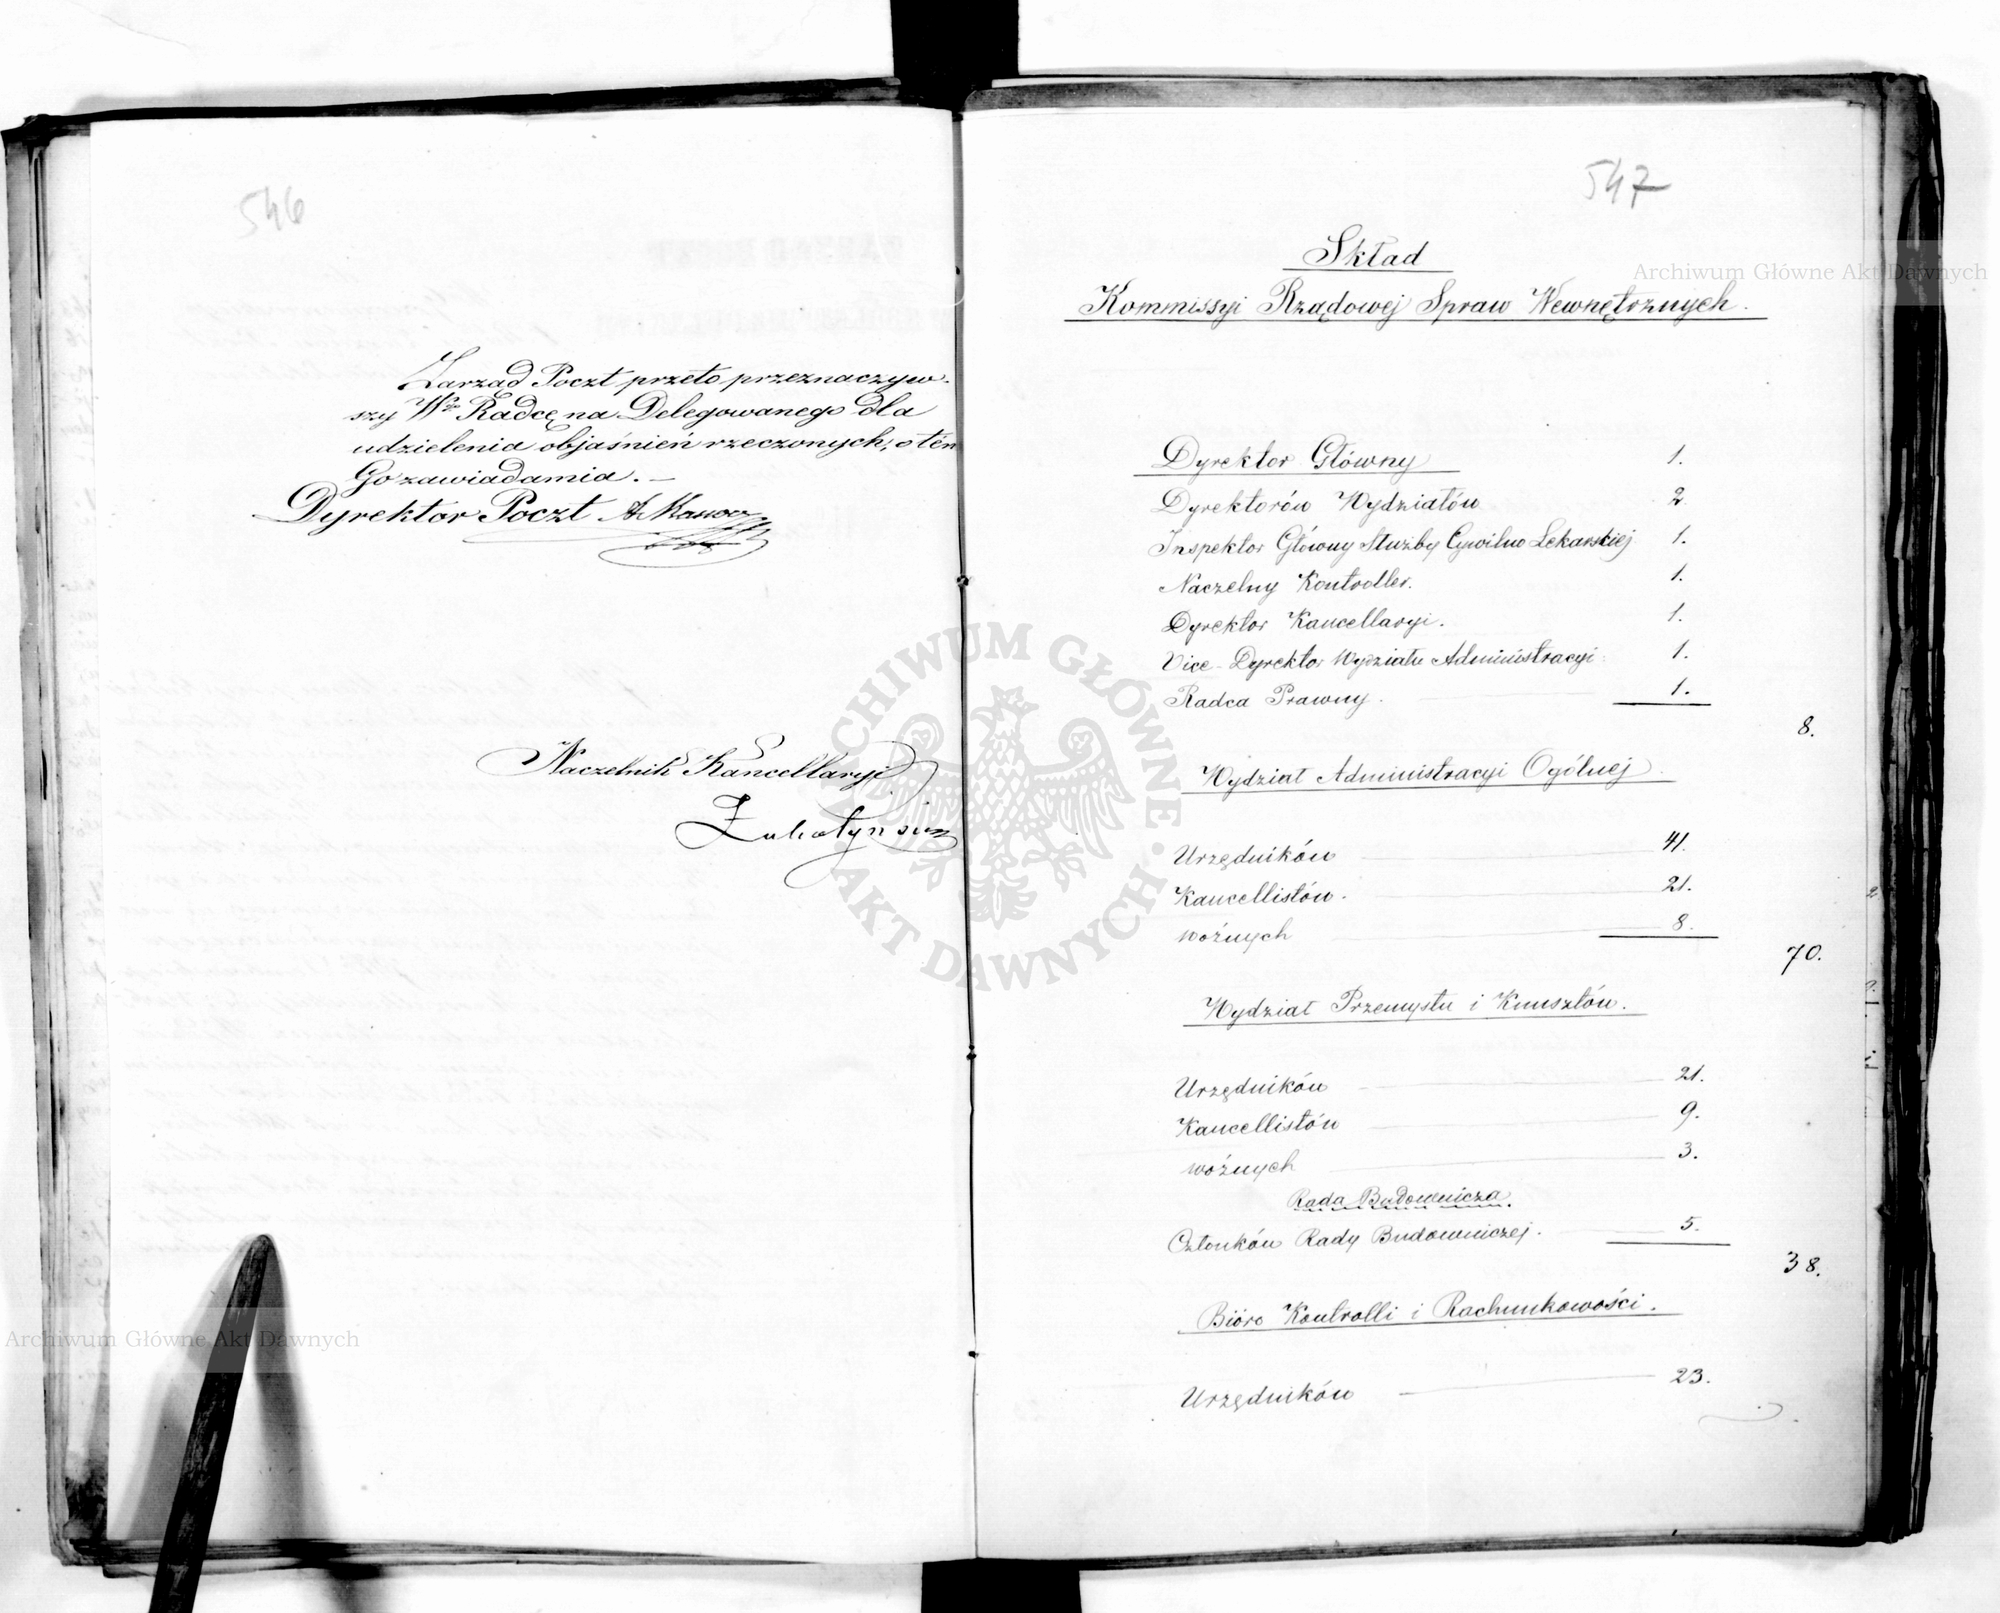 546
Zarząd Poczt przeto przeznaczyw-
szy Wgo Radcę na Delegowanego dla
udzielenia objaśnień rzeczonych, o tém
Go zawiadamia. —
Dyrektor Poczt
Naczelnik Kancellaryi
547
Skład
Kommissyi Rządowej Spraw Wewnętrznych.
Dyrektor Główny 1.
Dyrektorów Wydziałów 2
Inspektor Główny Służby Cywilno Lekarskiej 1.
Naczelny Kontroller. 1.
Dyrektor Kancellaryi. 1.
Vice-Dyrektor Wydziału Administracyi 1.
Radca Prawny. 1.
8.
Wydział Administracyi Ogólnej
Urzędników 41.
Kancellistów. 21.
woźnych 8.
70.
Wydział Przemysłu i Kunsztów.
Urzędników 21.
Kancellistów 9.
woźnych 3.
Rada Budownicza.
Członków Rady Budowniczej. 5.
38.
Bióro Kontrolli i Rachunkowości.
Urzędników 23.
Archiwum Główne Akt Dawnych
Archiwum Główne Akt Dawnych
ARCHIWUM GŁÓWNE AKT DAWNYCH